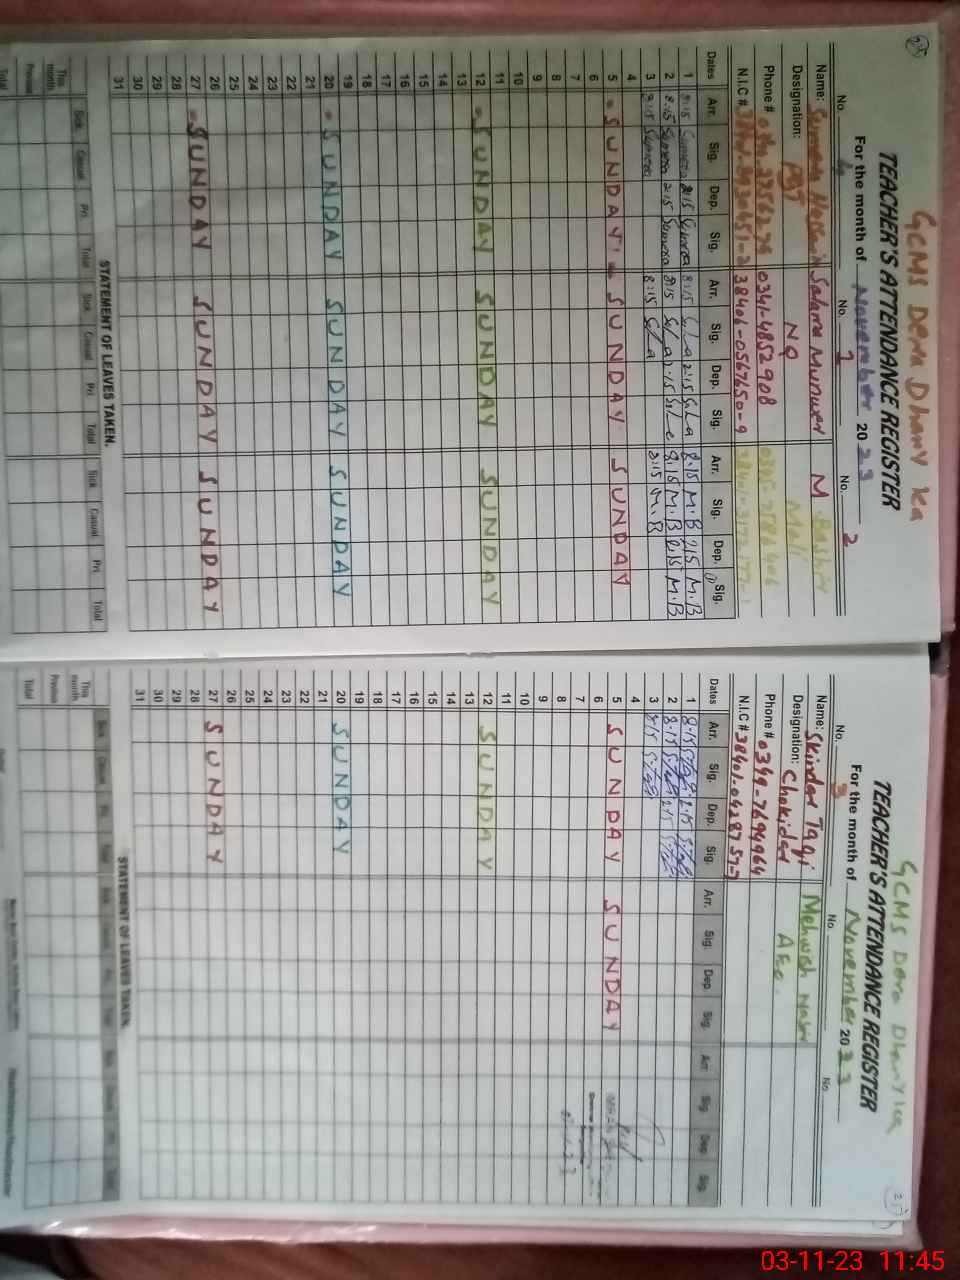 GCMS Dera Dhany ka
TEACHER'S ATTENDANCE REGISTER
For the month of November 2023
No. No. 1 No. 2
Name: Sumera Hassain Salama Munawer M. Bashir
Designation: PST NQ Mali
Phone # 0341-4852908
N.I.C # 38406-0567650-9
Dates Arr. Sig. Dep. Sig. Arr. Sig. Dep. Sig. Arr. Sig. Dep. Sig.
1 8:15 Sumera 2:15 Sumera 8:15 2:15 8.15 M.B 2:15 M.B
2 8:15 Sumera 2:15 Sumera 8:15 8.15 M.B 2:15 M.B
3 8:15 Sumera 8:15 8:15 M.B
4
5 SUNDAY SUNDAY SUNDAY
6
7
8
9
10
11
12 SUNDAY SUNDAY SUNDAY
13
14
15
16
17
18
19
20 SUNDAY SUNDAY SUNDAY
21
22
23
24
25
26
27 SUNDAY SUNDAY SUNDAY
28
29
30
31
STATEMENT OF LEAVES TAKEN.
Sick Casual Pri Total Sick Casual Pri Total Sick Casual Pri Total
This month
Previous
Total
GCMS Dera Dhany ka
TEACHER'S ATTENDANCE REGISTER
For the month of November 2023
No. 3 No. No
Name: Skindar Taqi Mehwish Nasir
Designation: Chokidar AEO.
Phone # 0349-7694964
N.I.C # 38401-0428757-7
Dates Arr. Sig. Dep. Sig. Arr. Sig. Dep. Sig. Arr Sig Dep Sig
1 8.15 2.15
2 8.15 2:15
3 8:15
4
5 SUNDAY SUNDAY
6
7
8
9
10
11
12 SUNDAY
13
14
15
16
17
18
19
20 SUNDAY
21
22
23
24
25
26
27 SUNDAY
28
29
30
31
STATEMENT OF LEAVES TAKEN.
This month
Previous
Total
03-11-23 11:45